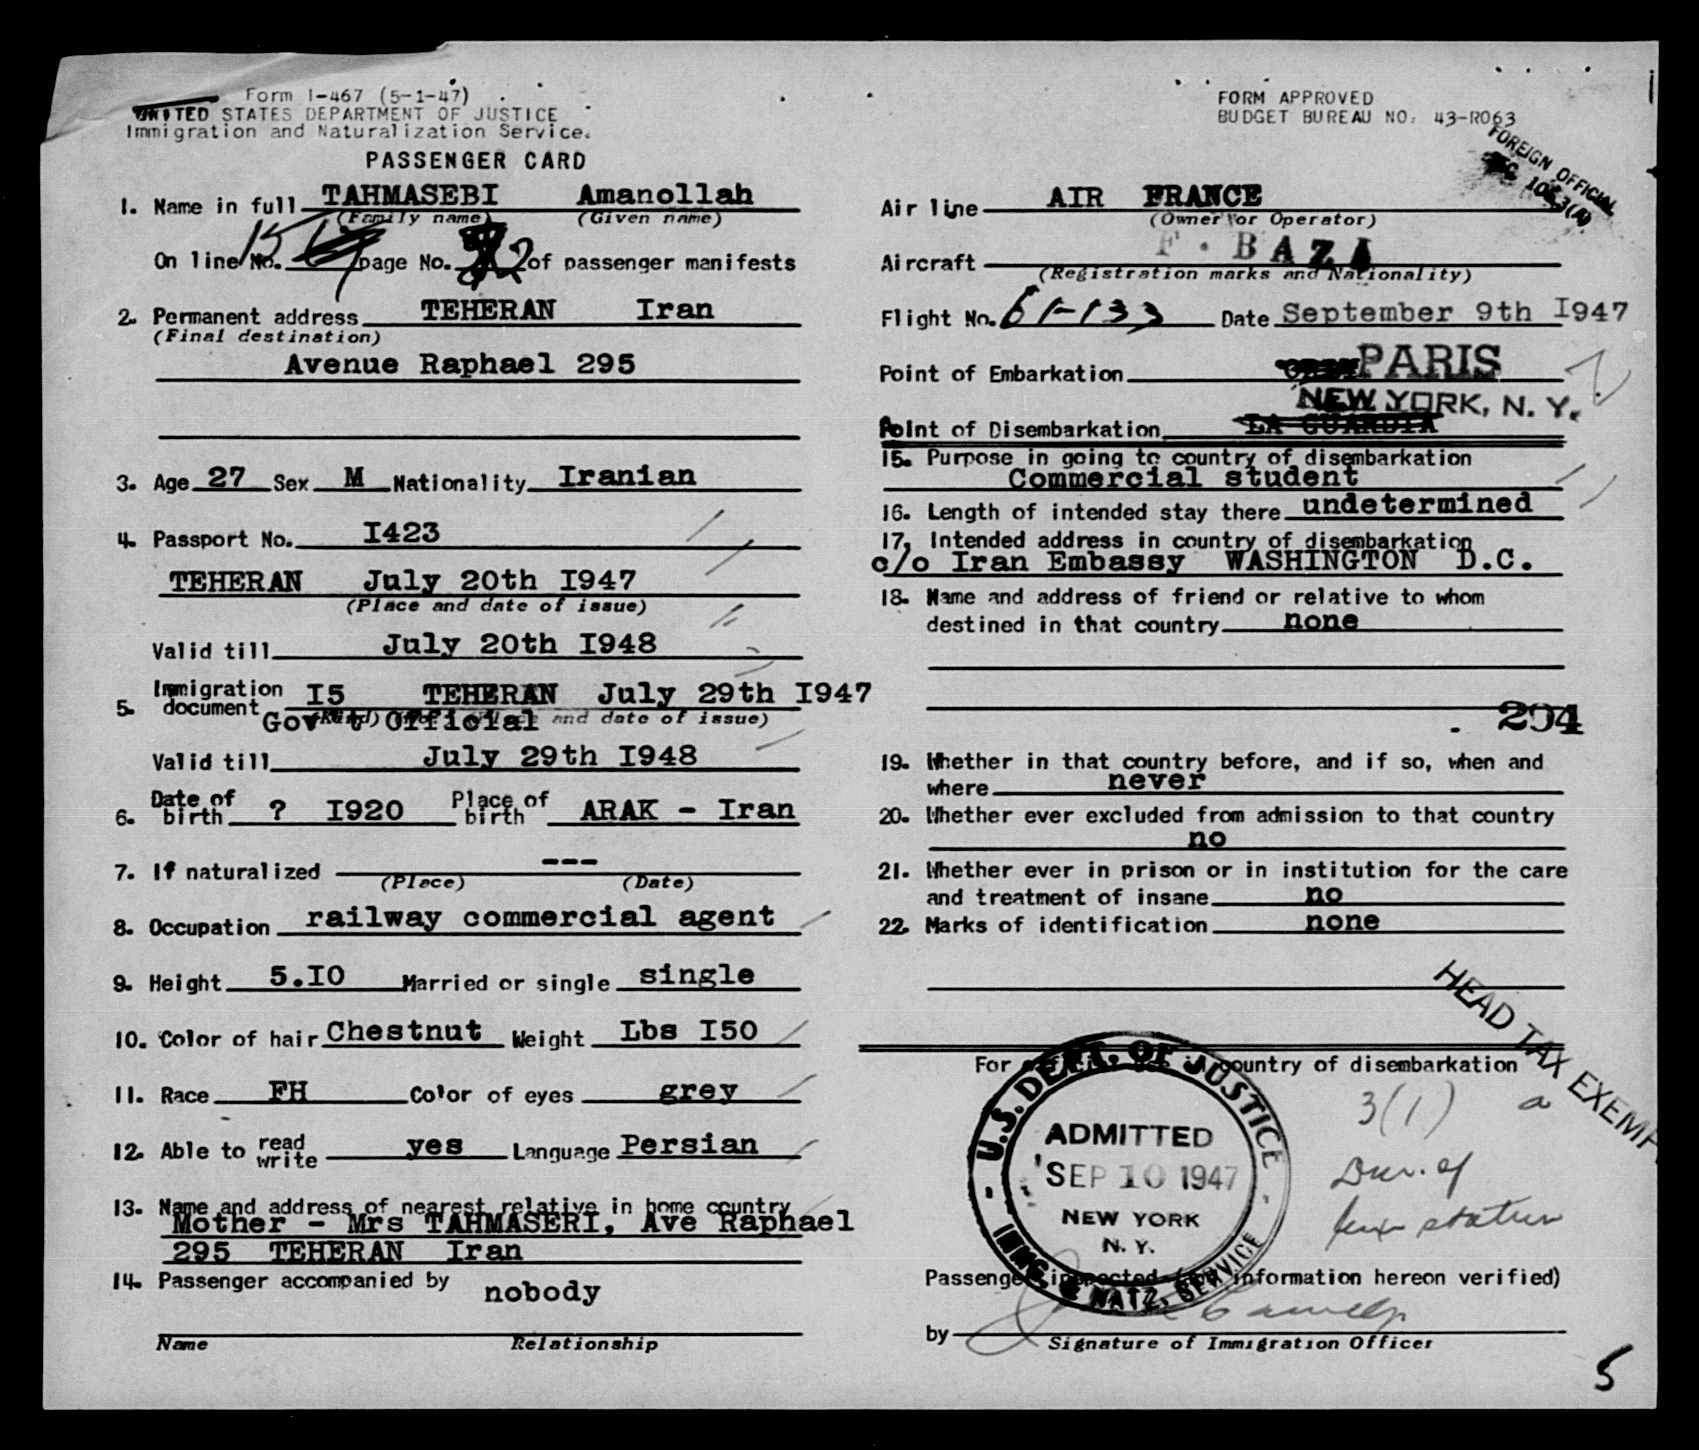 Form I-467 (5-1-47)
UNITED STATES DEPARTMENT OF JUSTICE
Immigration and Naturalization Service.
PASSENGER CARD
1. Name in full TAHMASEBI Amanollah
(Family name) (Given name)
On line No. 15 page No. 2 of passenger manifests
2. Permanent address TEHERAN Iran
(Final destination)
Avenue Raphael 295
3. Age 27 Sex M Nationality Iranian
4. Passport No. I423
TEHERAN July 20th I947
(Place and date of issue)
Valid till July 20th I948
5. Immigration document I5 TEHERAN July 29th I947
Gov't Official and date of issue)
Valid till July 29th I948
6. Date of birth ? I920 Place of birth ARAK - Iran
7. If naturalized ---
(Place) (Date)
8. Occupation railway commercial agent
9. Height 5.I0 Married or single single
10. Color of hair Chestnut Weight Lbs I50
11. Race FH Color of eyes grey
12. Able to read write yes Language Persian
13. Name and address of nearest relative in home country
Mother - Mrs TAHMASERI, Ave Raphael
295 TEHERAN Iran
14. Passenger accompanied by nobody
Name Relationship
FORM APPROVED
BUDGET BUREAU NO. 43-R063
FOREIGN OFFICIAL
Air line AIR FRANCE
(Owner or Operator)
Aircraft F. BAZ
(Registration marks and Nationality)
Flight No. 61-133 Date September 9th I947
Point of Embarkation PARIS
NEW YORK, N. Y.
Point of Disembarkation LA GUARDIA
15. Purpose in going to country of disembarkation
Commercial student
16. Length of intended stay there undetermined
17. Intended address in country of disembarkation
c/o Iran Embassy WASHINGTON D.C.
18. Name and address of friend or relative to whom
destined in that country none
294
19. Whether in that country before, and if so, when and
where never
20. Whether ever excluded from admission to that country
no
21. Whether ever in prison or in institution for the care
and treatment of insane no
22. Marks of identification none
HEAD TAX EXEMP
For official use in country of disembarkation
U.S. DEPT. OF JUSTICE
ADMITTED
SEP 10 1947
NEW YORK
N. Y.
IMMG. & NATZ. SERVICE
3(1) a
Dur. of
status
Passenger inspected (and information hereon verified)
by
Signature of Immigration Officer
5